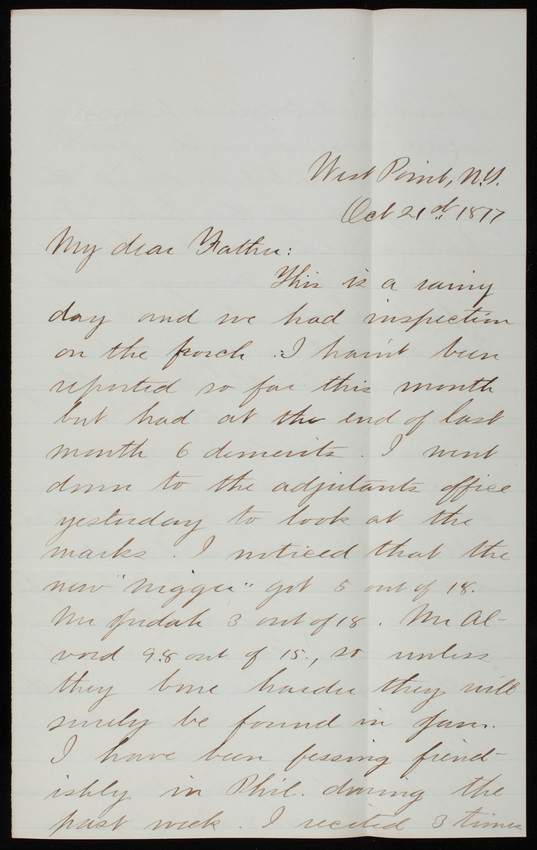 West Point, N.Y.
Oct 21st 1877
My dear Father:
This is a rainy
day and we had inspection
on the porch. I haint been
reported so far this month
but had at the end of last
month 6 demerits. I went
down to the adjutants office
yesterday to look at the
marks. I noticed that the
new "nigger" got 5 out of 18.
Mr Judah 3 out of 18. Mr Al-
vord 9.8 out of 15., so unless
they bone harder they will
surely be found in Jan.
I have been fessing fiend-
ishly in Phil. during the
past week. I recited 3 times